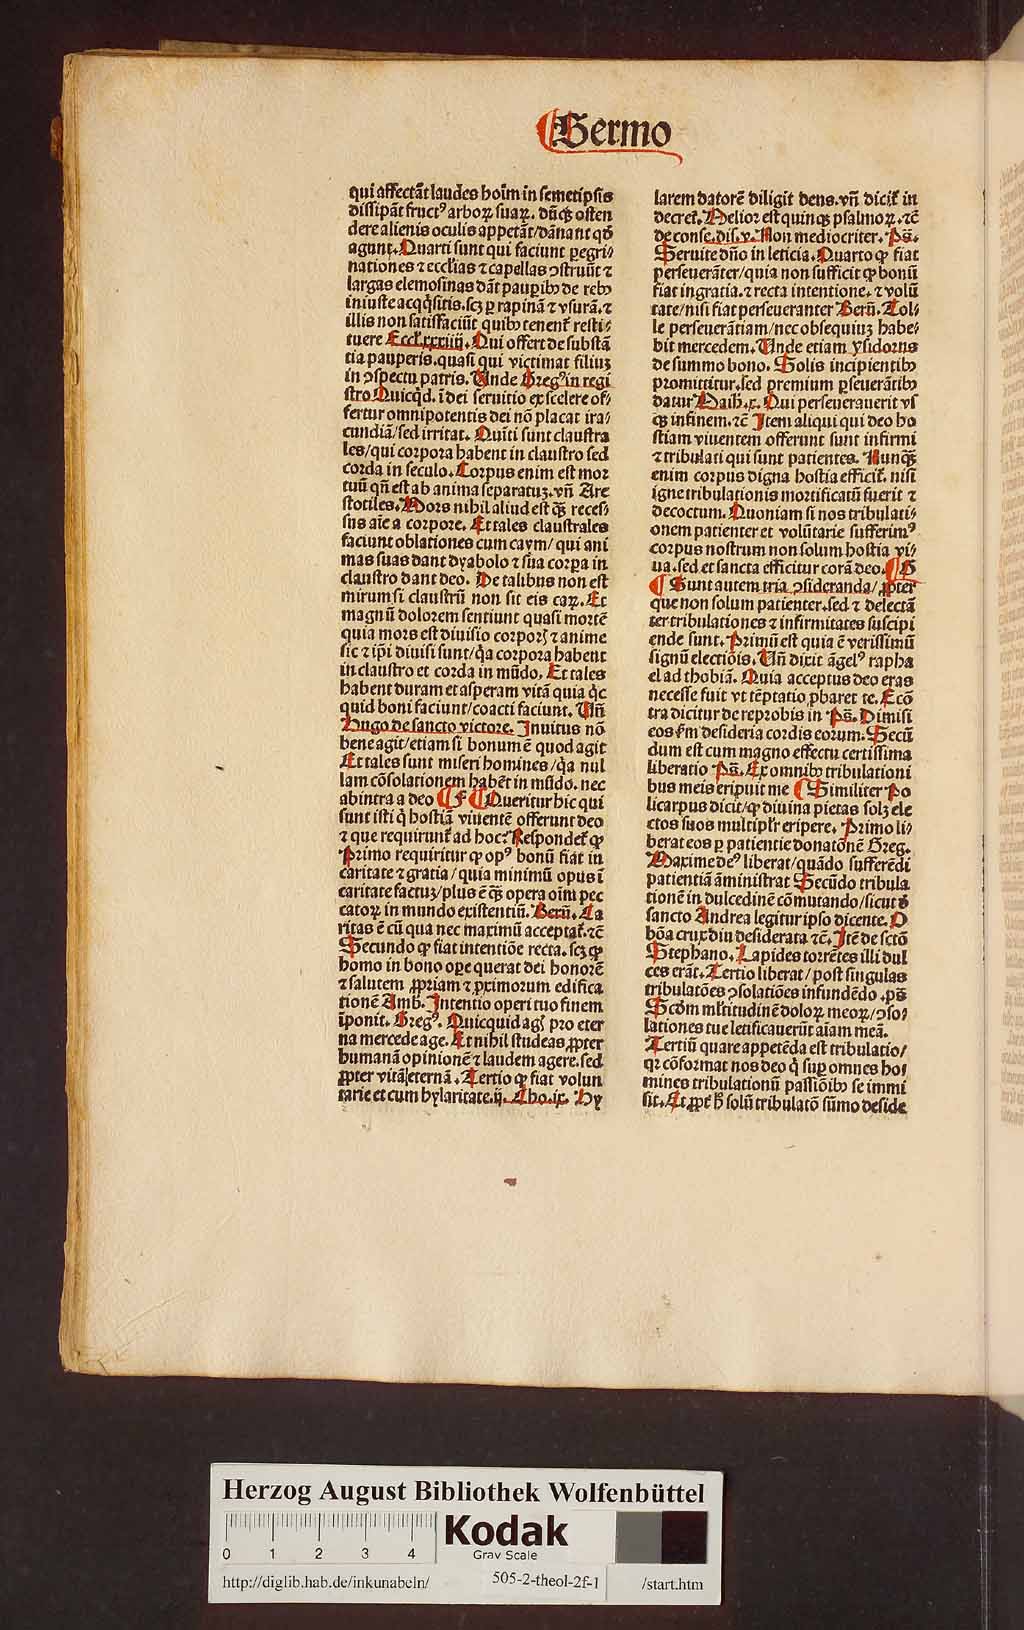 Sermo
qui affectāt laudes hoīm in semetipsis
dissipāt fruct⁹ arboꝝ suaꝝ. dūqꝫ osten
dere alienis oculis appetāt/dānant qd̄
agunt. Quarti sunt qui faciunt peregri⸗
nationes ⁊ ecclīas ⁊ capellas ꝯstruūt ⁊
largas elemosinas dāt pauꝑibꝰ de rebꝰ
iniuste acqͥsitis. scꝫ ꝑ rapinā ⁊ vsurā. ⁊
illis non satisfaciūt quibꝰ tenent̄ resti⸗
tuere Eccl̄. xxxiiij. Qui offert de substā
tia pauperis. quasi qui victimat filiuꝫ
in ꝯspectu patris. Unde Greg⁹ in regi
stro Quicqͥd. ī dei seruitio ex scelere of⸗
fertur omnipotentis dei nō placat ira⸗
cundiā/sed irritat. Quīti sunt claustra
les/qui corpora habent in claustro sed
corda in seculo. Corpus enim est mor
tuū qn̄ est ab anima separatuꝫ. vn̄ Are
stotiles. Mors nihil aliud est qꝫ reces⸗
sus aīe a corpore. Et tales claustrales
faciunt oblationes cum caym/ qui ani
mas suas dant dyabolo ⁊ sua corꝑa in
claustro dant deo. De talibus non est
mirum si claustrū non sit eis caꝝ. Et
magnū dolorem sentiunt quasi mortē
quia mors est diuisio corporꝭ ⁊ anime
sic ⁊ ip̄i diuisi sunt/qͥa corpora habent
in claustro et corda in mūdo. Et tales
habent duram et asperam vitā quia qͥc
quid boni faciunt/coacti faciunt. Un̄
Hugo de sancto victore. Inuitus nō
bene agit/etiam si bonum ē quod agit
Et tales sunt miseri homines/qͥa nul
lam cōsolationem habēt in mūdo. nec
ab intra a deo ¶ F ¶ Queritur hic qui
sunt isti qͥ hostiā viuentē offerunt deo
⁊ que requirunt̄ ad hoc? Respondet̄ ꝙ
Primo requiritur ꝙ op⁹ bonū fiat in
caritate ⁊ gratia/quia minimū opus ī
caritate factuꝫ/plus ē qꝫ opera oīm pec
catoꝝ in mundo existentiū. Bern̄. Ca
ritas ē cū qua nec maximū acceptat̄. ⁊c̄
Secundo ꝙ fiat intentiōe recta. scꝫ ꝙ
homo in bono oꝑe querat dei honorē
⁊ salutem ꝓpriam ⁊ ꝓximorum edifica
tionē Amb. Intentio operi tuo finem
īponit. Greg⁹. Quicquid agꝭ pro eter
na mercede age. Et nihil studeas ꝓpter
humanā opinionē ⁊ laudem agere. sed
ꝓpter vitā eternā. Tertio ꝙ fiat volun
tarie et cum hylaritate. ij. Cho. ix. Hy
larem datorē diligit deus. vn̄ dicit̄ in
decret̄. Melior est quinqꝫ psalmoꝝ. ⁊c̄
de conse. dis. v. Non mediocriter. Ps̄.
Seruite dn̄o in leticia. Quarto ꝙ fiat
perseuerāter/quia non sufficit ꝙ bonū
fiat in gratia. ⁊ recta intentione. ⁊ volū
tate/nisi fiat perseueranter Bern̄. Tol⸗
le perseuerātiam/nec obsequiuꝫ habe⸗
bit mercedem. Unde etiam ysidorus
de summo bono. Solis incipientibꝰ
promittitur. sed premium ꝑseuerātibꝰ
datur Math. x. Qui perseuerauerit vs
qꝫ in finem. ⁊c̄ Item aliqui qui deo ho
stiam viuentem offerunt sunt infirmi
⁊ tribulati qui sunt patientes. Nunqꝫ
enim corpus digna hostia efficit̄. nisi
igne tribulationis mortificatū fuerit ⁊
decoctum. Quoniam si nos tribulati⸗
onem patienter et volūtarie sufferim⁹
corpus nostrum non solum hostia vi⸗
ua. sed et sancta efficitur corā deo. ¶ G
¶ Sunt autem tria ꝯsideranda/ ꝓpter
que non solum patienter. sed ⁊ delectā
ter tribulationes ⁊ infirmitates suscipi
ende sunt. Primū est quia ē verissimū
signū electiōis. Un̄ dixit āgel⁹ rapha
el ad thobiā. Quia acceptus deo eras
necesse fuit vt tēptatio ꝓbaret te. Ecō
tra dicitur de reprobis in Ps̄. Dimisi
eos ẜm desideria cordis eorum. Secū
dum est cum magno effectu certissima
liberatio Ps̄. Ex omnibꝰ tribulationi
bus meis eripuit me ¶ Similiter Po
licarpus dicit/ꝙ diuina pietas solꝫ ele
ctos suos multipl̄r eripere. Primo li⸗
berat eos ꝑ patientie donatōnē Greg.
Maxime de⁹ liberat/quādo sufferēdi
patientiā āministrat Secūdo tribula
tionē in dulcedinē cōmutando/sicut ď
sancto Andrea legitur ipso dicente. O
bōa crux diu desiderata ⁊c̄. Itē de sctō
Stephano. Lapides torrētes illi dul
ces erāt. Tertio liberat/post singulas
tribulatōes ꝯsolatiōes infundēdo. ps̄
Scd̄m ml̄titudinē doloꝝ meoꝝ/ꝯso⸗
lationes tue letificauerūt aīam meā.
Tertiū quare appetēda est tribulatio/
qꝛ cōformat nos deo qͥ suꝑ omnes ho⸗
mines tribulationū passiōibꝰ se immi
sit. Et ꝓpt̄ h̄ solū tribulatō sūmo deside
Herzog August Bibliothek Wolfenbüttel
0 1 2 3 4
Kodak
Gray Scale
http://diglib.hab.de/inkunabeln/
505-2-theol-2f-1
/start.htm